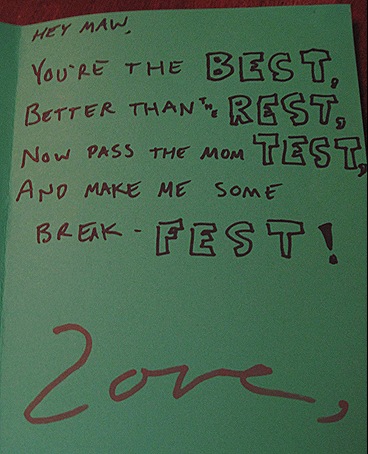 HEY MAW,
YOU'RE THE BEST,
BETTER THAN THE REST,
NOW PASS THE MOM TEST,
AND MAKE ME SOME
BREAK-FEST!
Love,